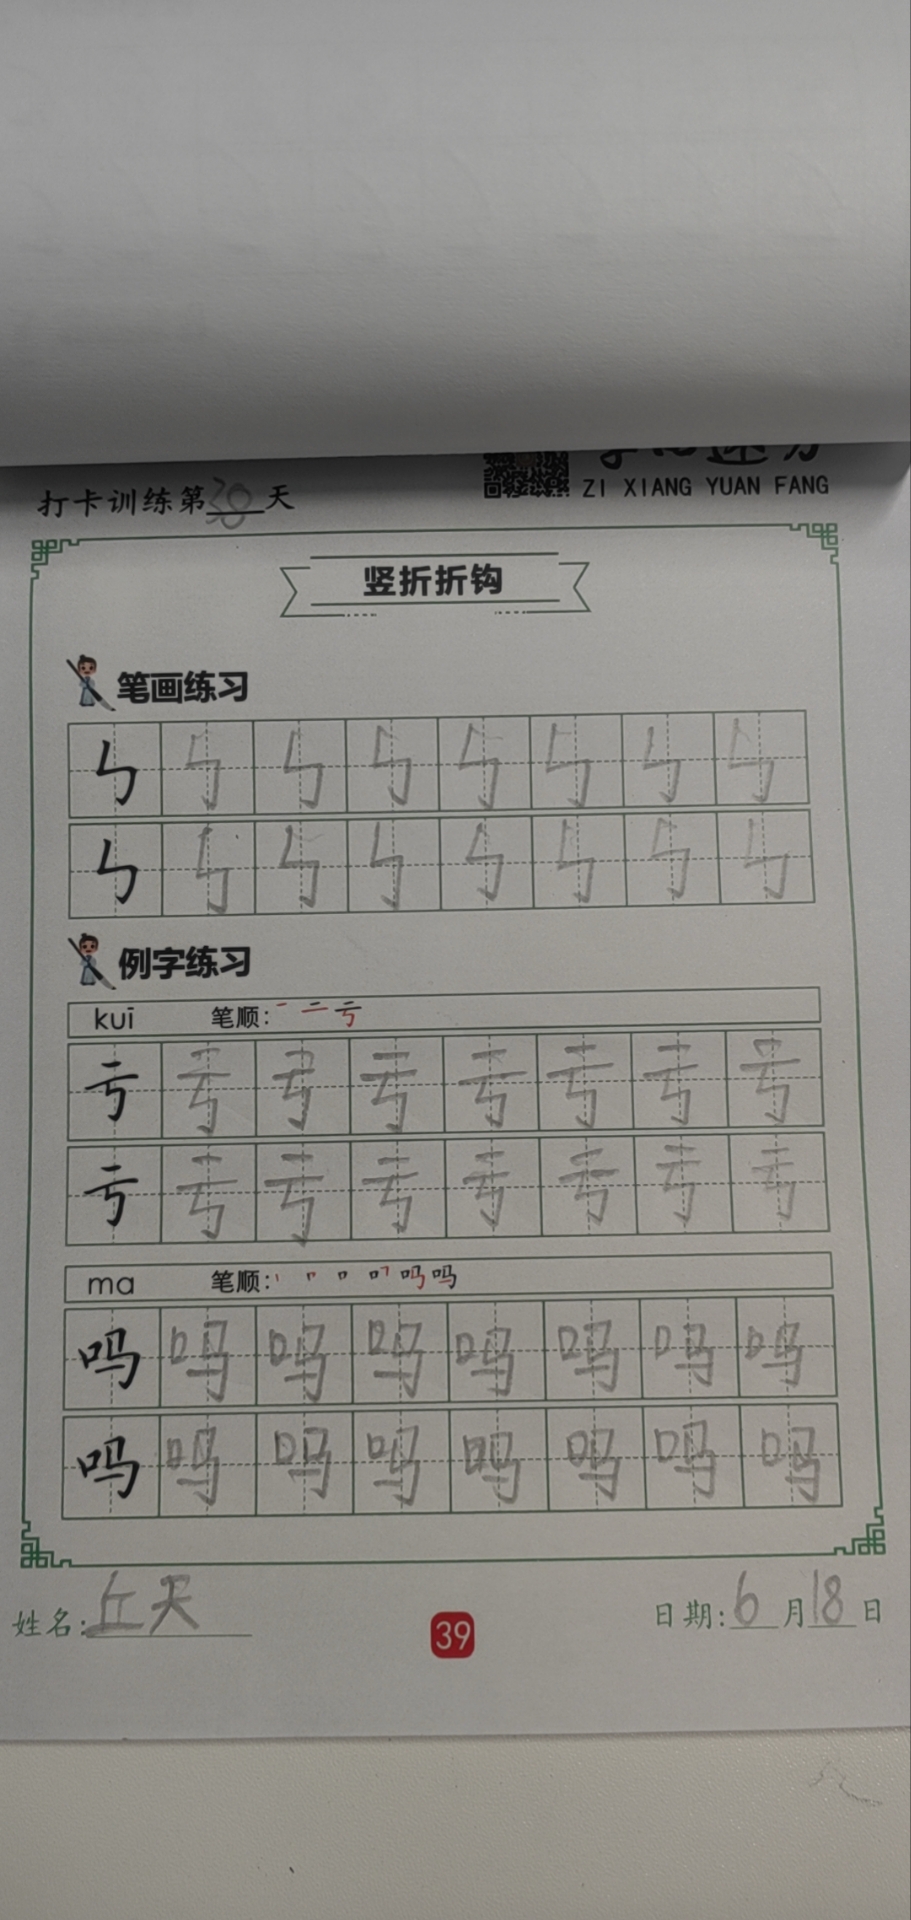 ZI XIANG YUAN FANG
打卡训练第38天
竖折折钩
笔画练习
ㄣㄣㄣㄣㄣㄣㄣㄣ
ㄣㄣㄣㄣㄣㄣㄣㄣ
例字练习
kuī 笔顺: 一 二 亏
亏亏亏亏亏亏亏亏
亏亏亏亏亏亏亏亏
ma 笔顺: 丨 口 吗 吗
吗吗吗吗吗吗吗吗
吗吗吗吗吗吗吗吗
姓名:丘天
39
日期:6月18日